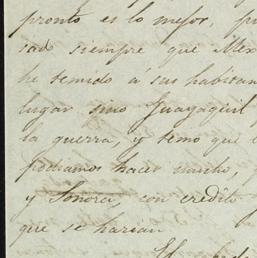 pronto es lo mejor, p
sad siempre que Mex
he temido á sus habitan
lugar sino Guayaquil
la guerra, y temo que
podriamos hacer mucho,
y Sonora, con credito
que se harian